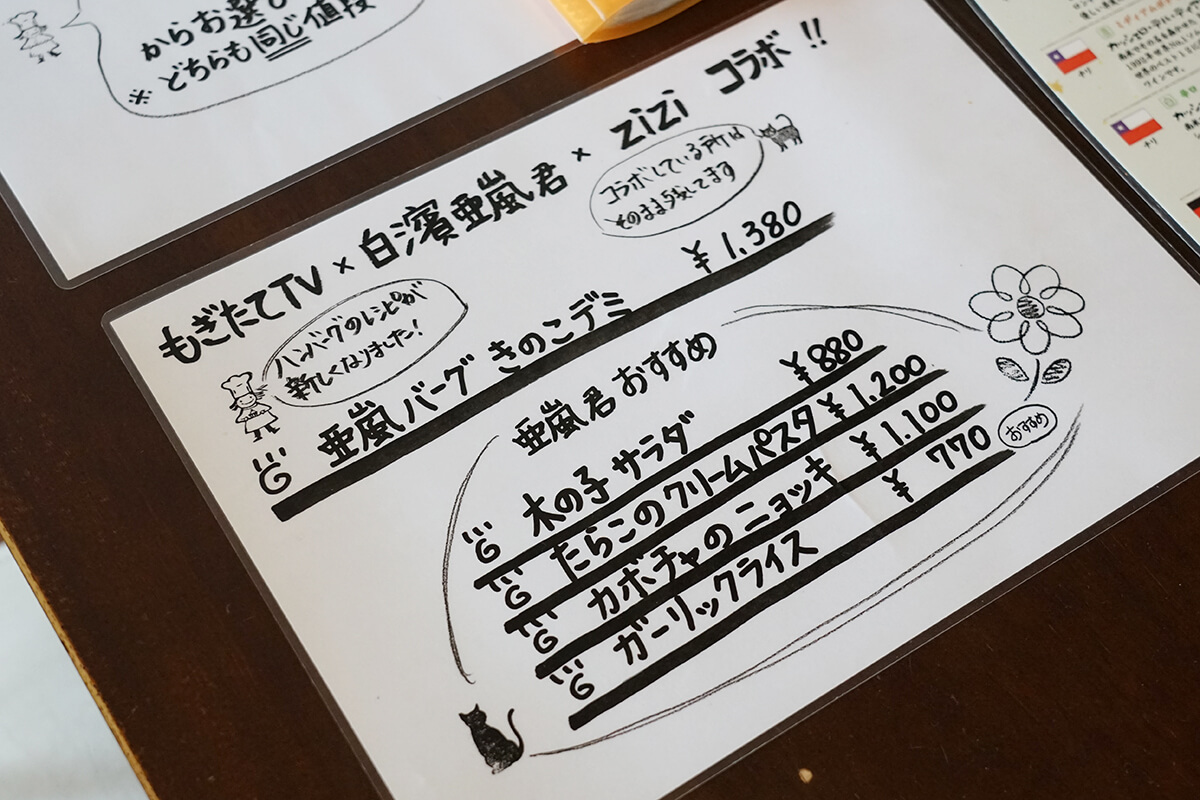 からお選び
※どちらも同じ値段
もぎたてTV × 白濱亜嵐君 × ZiZi コラボ!!
コラボしている所は
そのまま残してます
ハンバーグのレシピが
新しくなりました!
亜嵐バーグ きのこデミ ¥1,380
亜嵐君おすすめ
木の子サラダ ¥880
たらこのクリームパスタ ¥1,200
カボチャのニョッキ ¥1,100
ガーリックライス ¥770
おすすめ
チリ
チリ